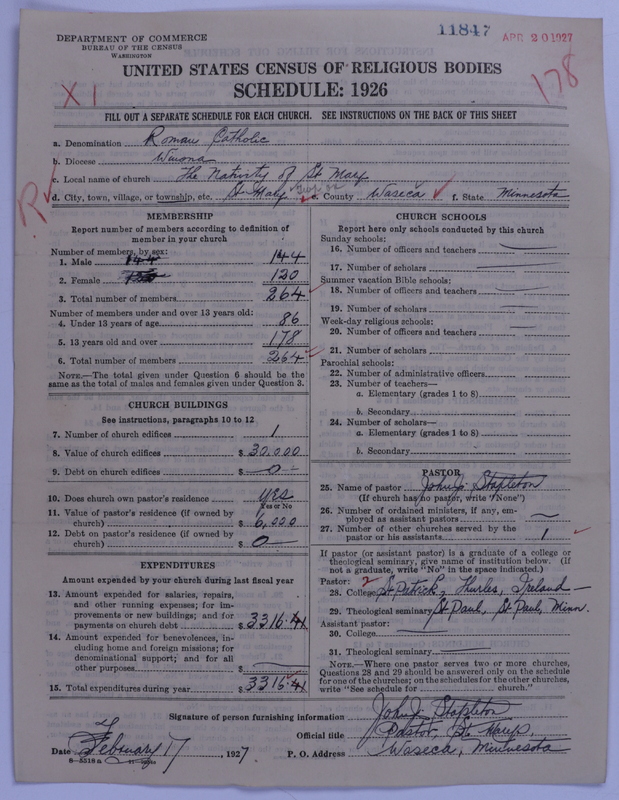 11847 APR 20 1927
DEPARTMENT OF COMMERCE
BUREAU OF THE CENSUS
WASHINGTON
UNITED STATES CENSUS OF RELIGIOUS BODIES
X 1 SCHEDULE: 1926 178
FILL OUT A SEPARATE SCHEDULE FOR EACH CHURCH. SEE INSTRUCTIONS ON THE BACK OF THIS SHEET
a. Denomination Roman Catholic
b. Diocese Winona
c. Local name of church The Nativity of St Mary
R d. City, town, village, or township, etc. St Mary e. County Waseca f. State Minnesota
MEMBERSHIP
Report number of members according to definition of
member in your church
Number of members, by sex:
1. Male 144 144
2. Female 120
3. Total number of members 264
Number of members under and over 13 years old:
4. Under 13 years of age 86
5. 13 years old and over 178
6. Total number of members 264
NOTE.—The total given under Question 6 should be
same as the total of males and females given under Question 3.
CHURCH BUILDINGS
See instructions, paragraphs 10 to 12
7. Number of church edifices 1
8. Value of church edifices $ 30,000
9. Debt on church edifices $ 0
10. Does church own pastor's residence yes
Yes or No
11. Value of pastor's residence (if owned by
church) $ 6,000
12. Debt on pastor's residence (if owned by
church) $ 0
EXPENDITURES
Amount expended by your church during last fiscal year
13. Amount expended for salaries, repairs,
and other running expenses; for im-
provements or new buildings; and for
payments on church debt $ 3316.41
14. Amount expended for benevolences, in-
cluding home and foreign missions; for
denominational support; and for all
other purposes $
15. Total expenditures during year $ 3316.41
CHURCH SCHOOLS
Report here only schools conducted by this church
Sunday schools:
16. Number of officers and teachers
17. Number of scholars
Summer vacation Bible schools:
18. Number of officers and teachers
19. Number of scholars
Week-day religious schools:
20. Number of officers and teachers
21. Number of scholars
Parochial schools:
22. Number of administrative officers
23. Number of teachers—
a. Elementary (grades 1 to 8)
b. Secondary
24. Number of scholars—
a. Elementary (grades 1 to 8)
b. Secondary
PASTOR
25. Name of pastor John J. Stapleton
(If church has no pastor, write "None")
26. Number of ordained ministers, if any, em-
ployed as assistant pastors
27. Number of other churches served by the
pastor or his assistants 1
If pastor (or assistant pastor) is a graduate of a college or
theological seminary, give name of institution below. (If
not a graduate, write "No" in the space indicated.)
Pastor: 2
28. College St Patrick, Thurles, Ireland
29. Theological seminary St Paul, St Paul, Minn.
Assistant pastor:
30. College
31. Theological seminary
NOTE.—Where one pastor serves two or more churches,
Questions 28 and 29 should be answered only on the schedule
for one of the churches; on the schedules for the other churches,
write "See schedule for church."
Signature of person furnishing information John J. Stapleton
Official title Pastor, St Marys
Date February 17, 1927 P. O. Address Waseca, Minnesota